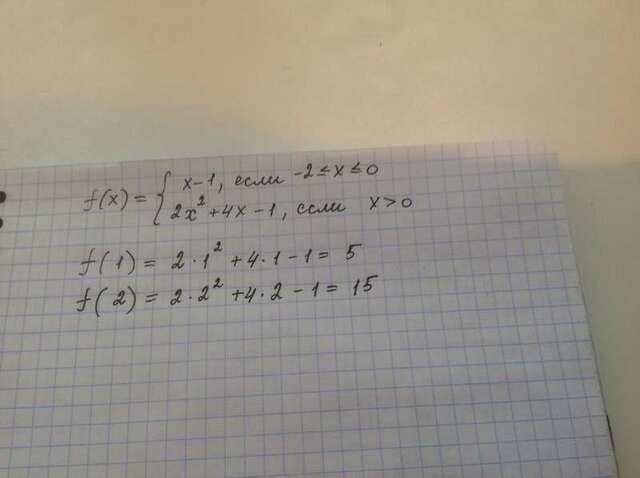 f(x) = { x-1, если -2 ≤ x ≤ 0
2x² + 4x - 1, если x > 0
f(1) = 2·1² + 4·1 - 1 = 5
f(2) = 2·2² + 4·2 - 1 = 15